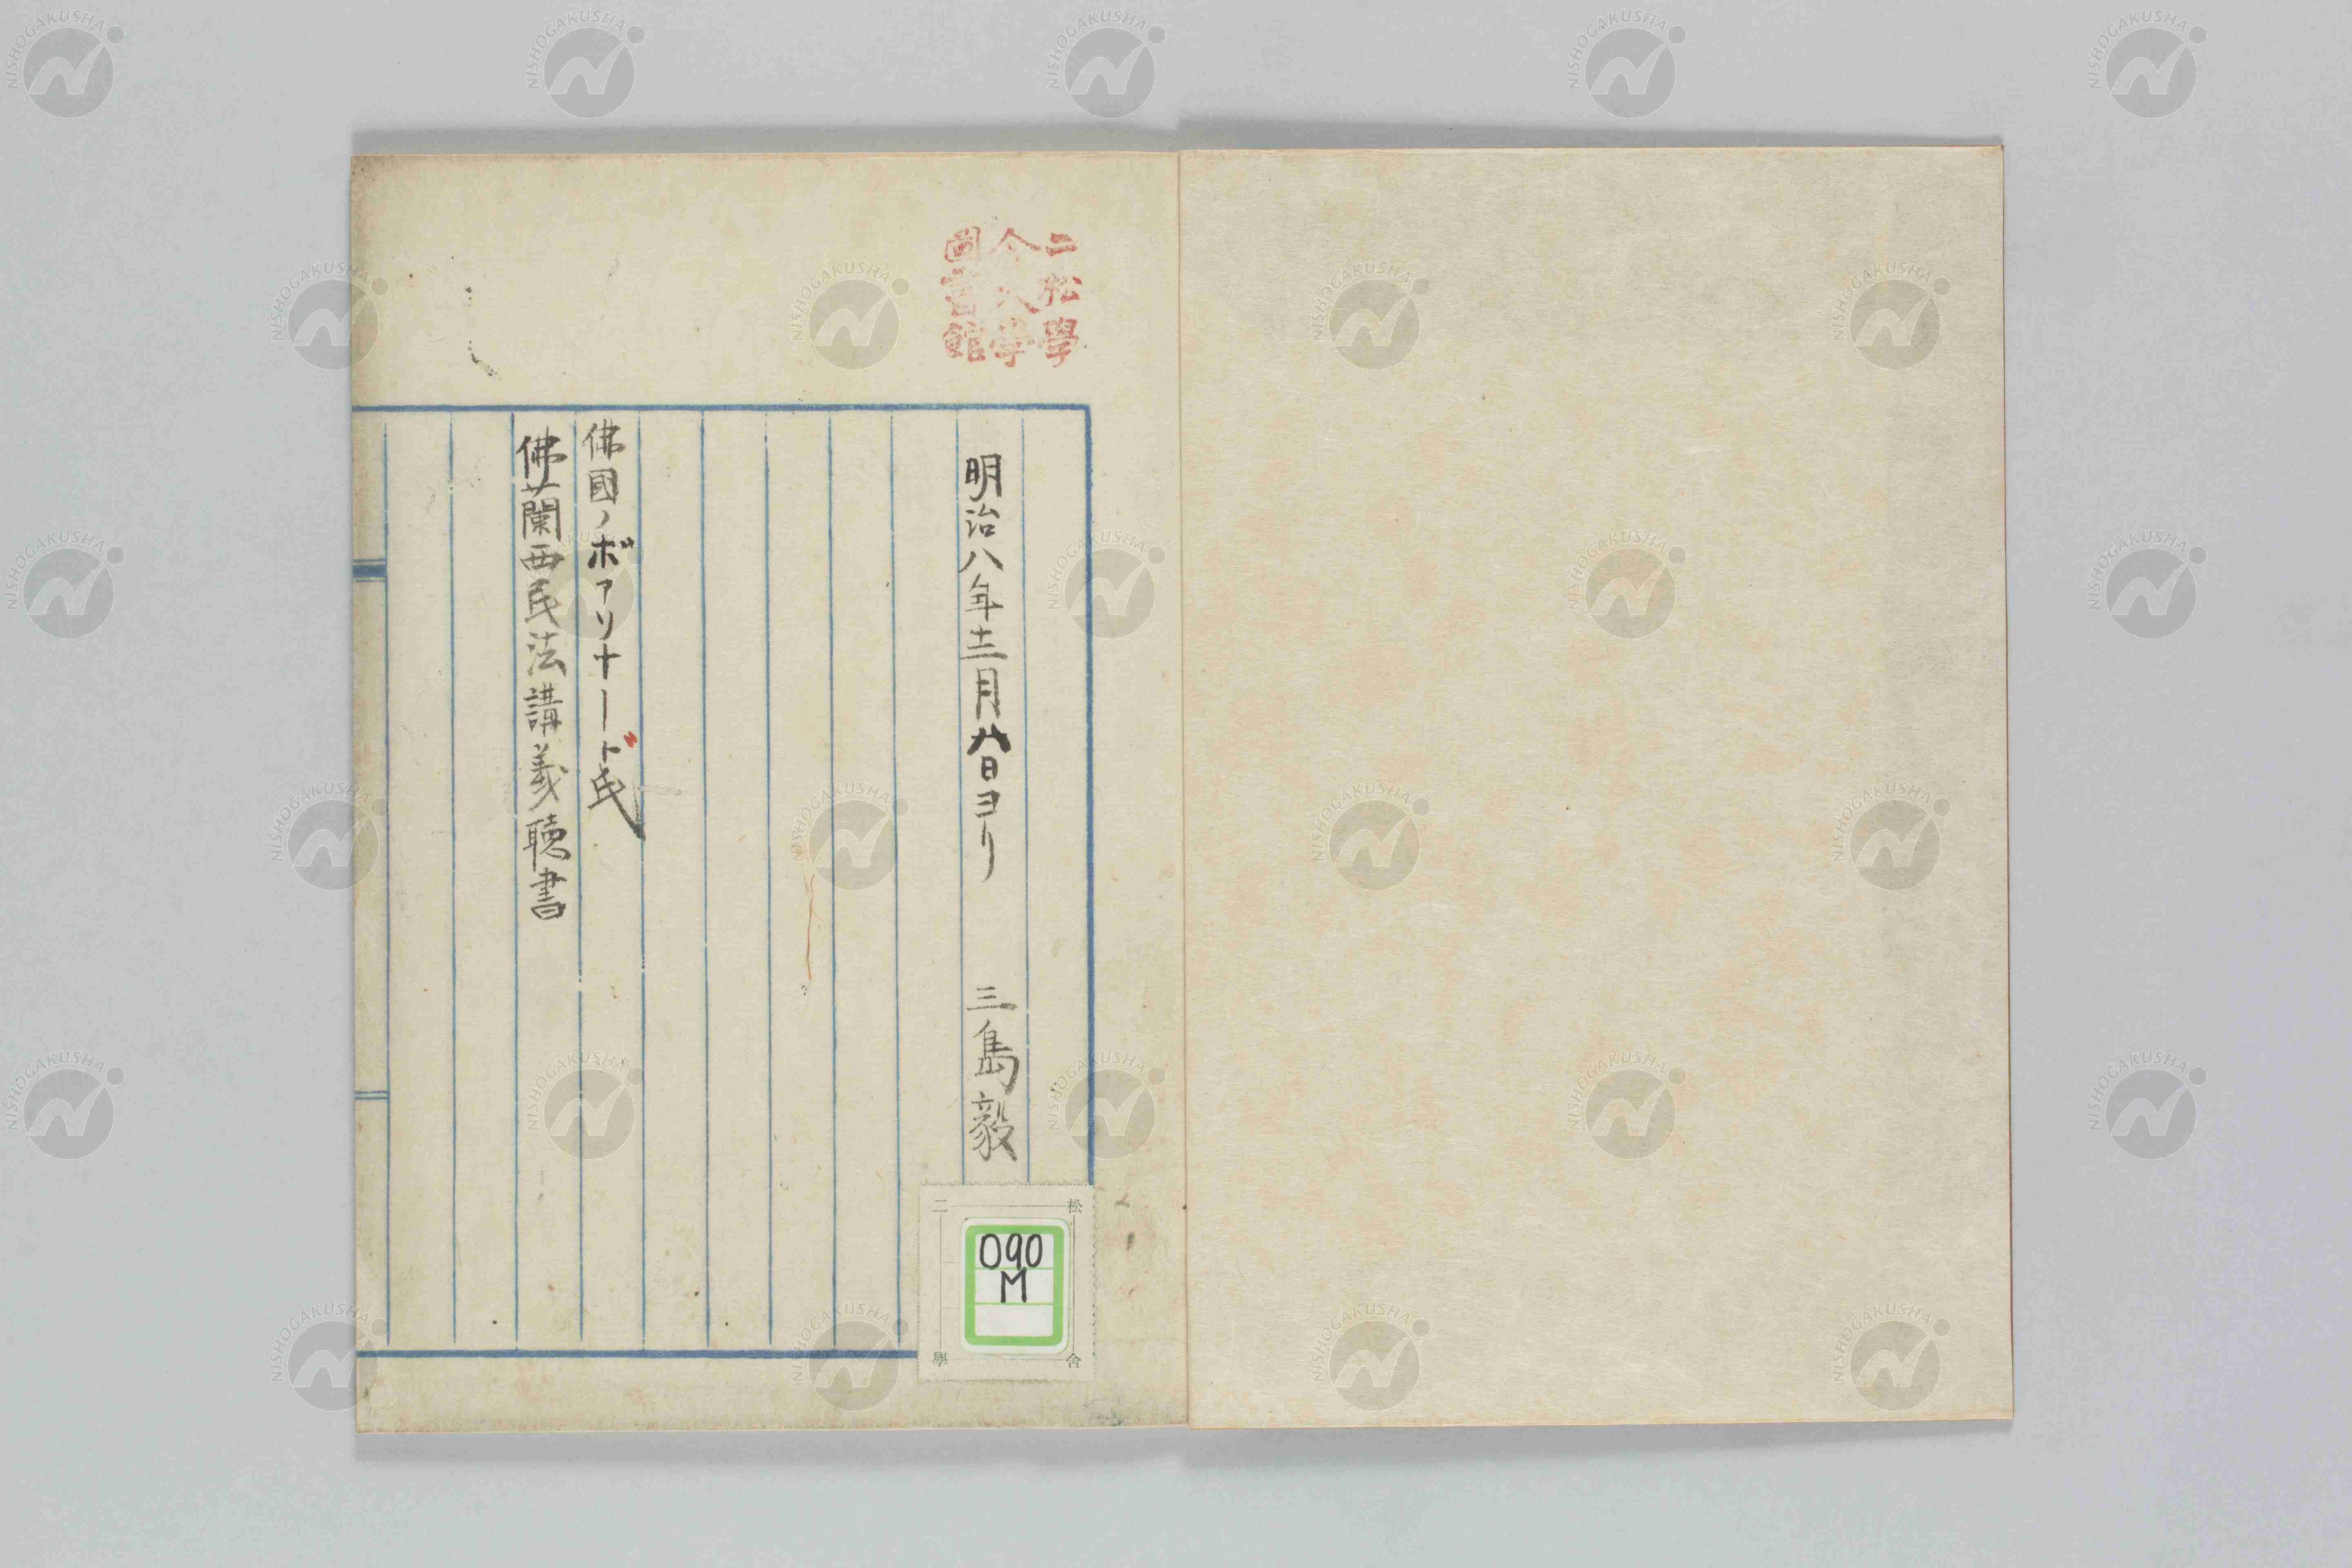 二松學
舍大學
圖書館
明治八年十二月八日ヨリ 三島毅
佛國ノボアソナード氏
佛蘭西民法講義聴書
二松
學舍
090
M
NISHOGAKUSHA